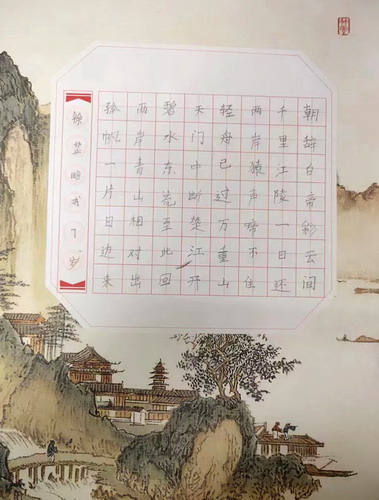 朝辞白帝彩云间
千里江陵一日还
两岸猿声啼不住
轻舟已过万重山
天门中断楚江开
碧水东流至此回
两岸青山相对出
孤帆一片日边来
徐 7岁